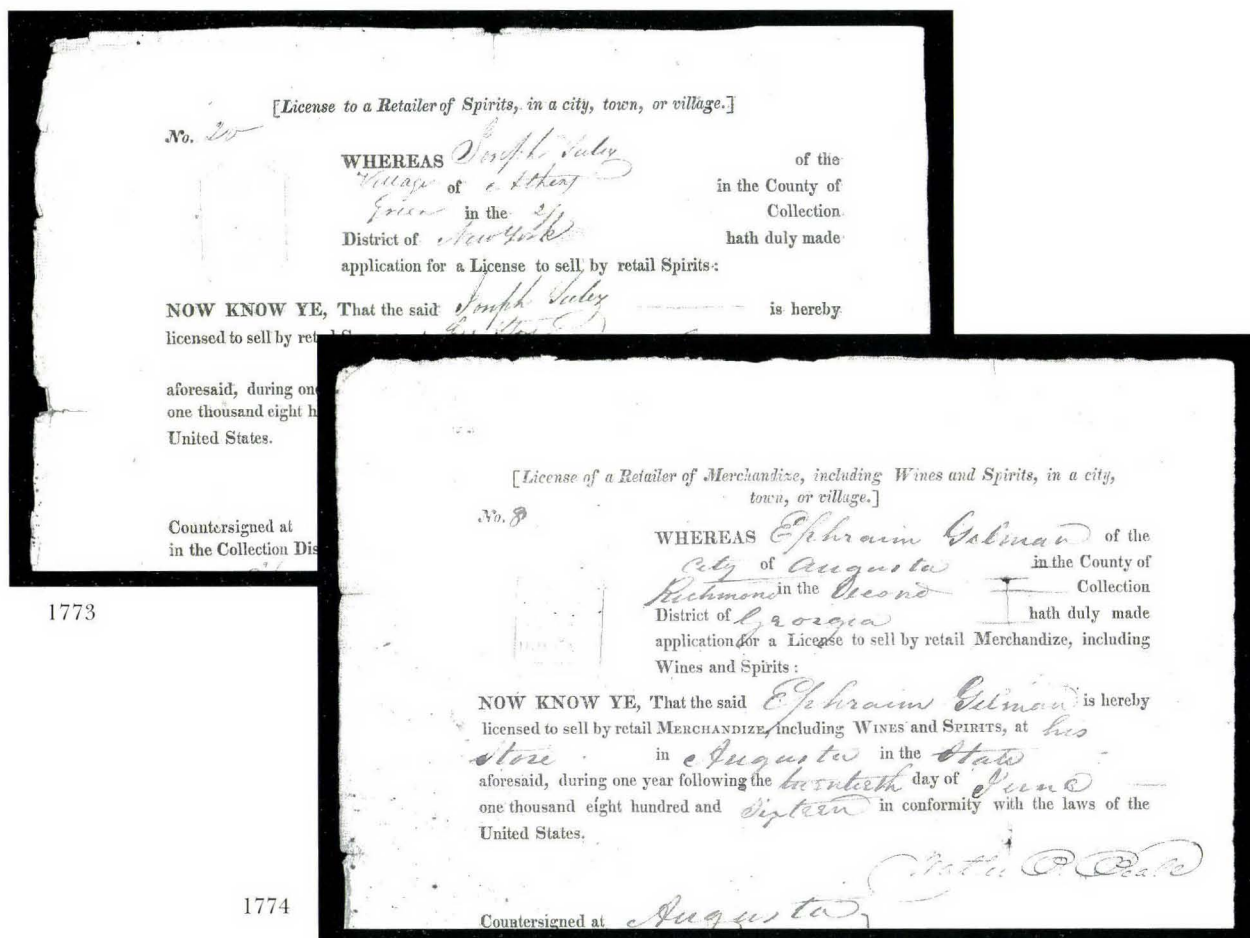 [License to a Retailer of Spirits, in a city, town, or village.]
No. 20
WHEREAS Joseph Seeley of the
Village of Athens in the County of
Green in the 2d Collection
District of New York hath duly made
application for a License to sell by retail Spirits:
NOW KNOW YE, That the said Joseph Seeley is hereby
licensed to sell by
aforesaid, during one
one thousand eight h
United States.
Countersigned at
in the Collection Dis
1773
[License of a Retailer of Merchandize, including Wines and Spirits, in a city,
town, or village.]
No. 8
WHEREAS Ephraim Gilman of the
City of Augusta in the County of
Richmond in the Second Collection
District of Georgia hath duly made
application for a License to sell by retail Merchandize, including
Wines and Spirits:
NOW KNOW YE, That the said Ephraim Gilman is hereby
licensed to sell by retail MERCHANDIZE, including WINES and SPIRITS, at his
store in Augusta in the State
aforesaid, during one year following the twentieth day of June
one thousand eight hundred and Sixteen in conformity with the laws of the
United States.
Countersigned at Augusta
1774